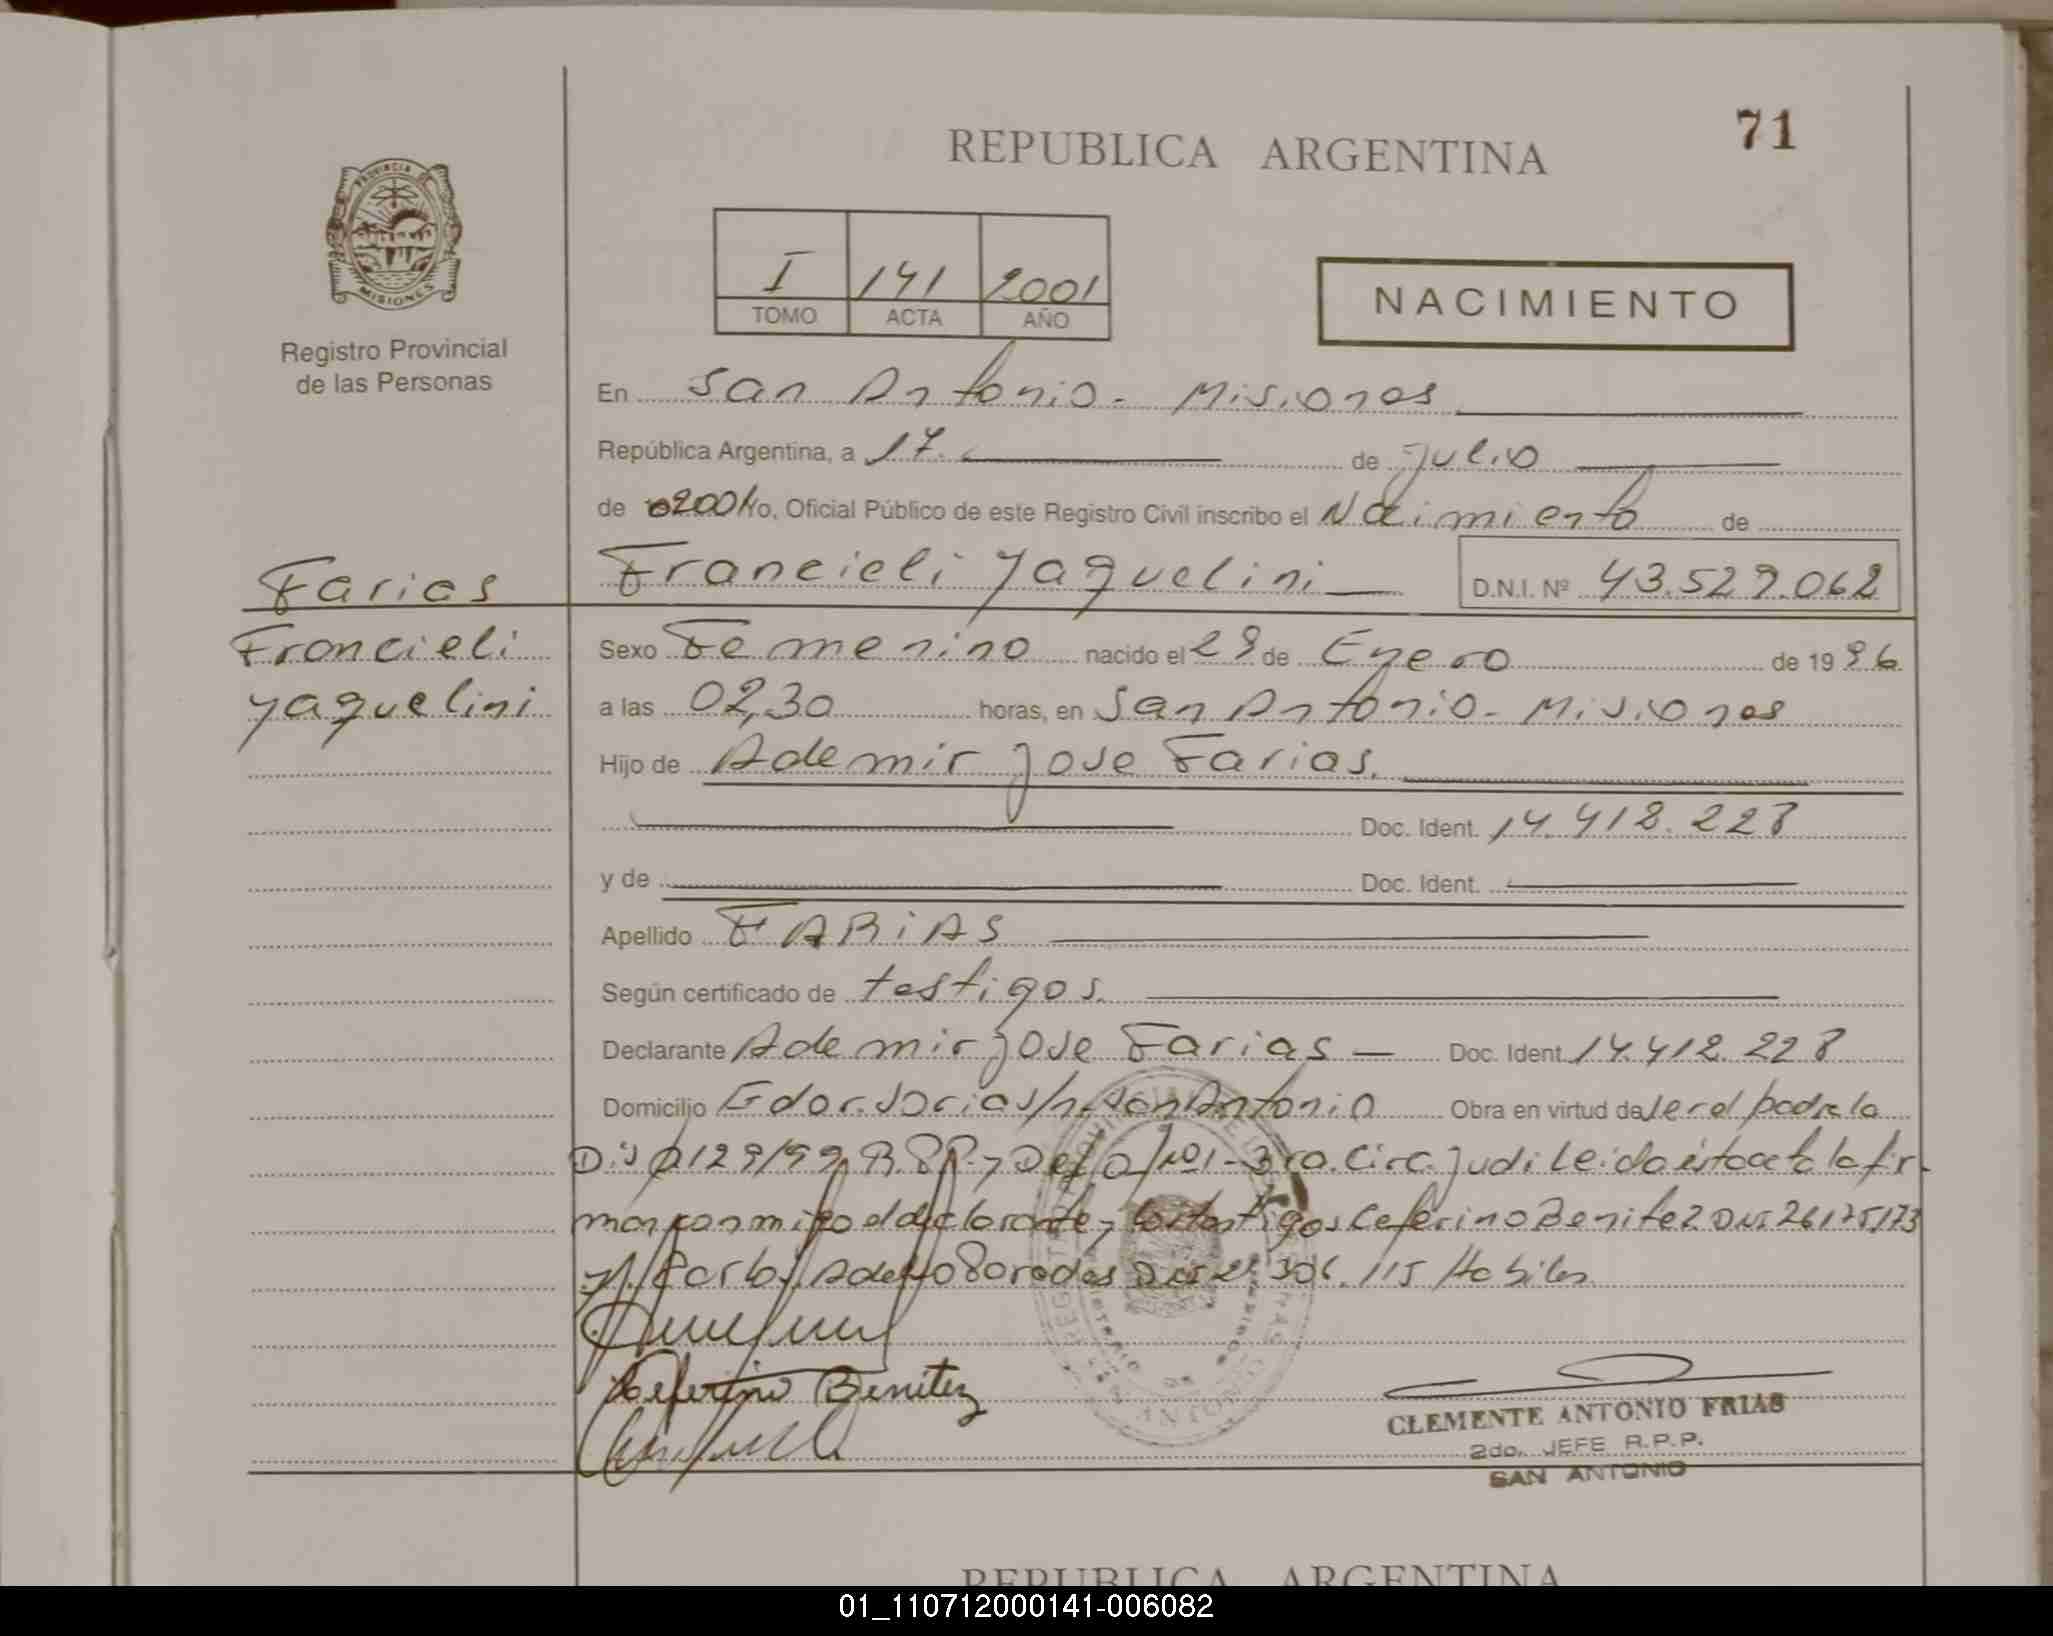 71
REPUBLICA ARGENTINA
PROVINCIA DE
MISIONES
Registro Provincial
de las Personas
I 141 2001
TOMO ACTA AÑO
NACIMIENTO
En San Antonio - Misiones
República Argentina, a 17 de julio
de 2001 Yo, Oficial Público de este Registro Civil inscribo el Nacimiento de
Farias
Francieli Yaquelini D.N.I. Nº 43.529.062
Francieli
Yaquelini
Sexo Femenino nacido el 29 de Enero de 19 96
a las 02,30 horas, en San Antonio - Misiones
Hijo de Ademir Jose Farias.
Doc. Ident. 14.412.228
y de Doc. Ident.
Apellido FARIAS
Según certificado de testigos.
Declarante Ademir Jose Farias — Doc. Ident. 14.412.228
Domicilio San Antonio Obra en virtud de ser el padre la
129/99 Nº 1 - 3ra. Circ. Judi Leida esta acta la fir-
man conmigo el declarante y los testigos Ceferino Benitez DNI 26175173
y Adolfo 115 Habiles
Ceferino Benitez
CLEMENTE ANTONIO FRIAS
2do. JEFE R.P.P.
SAN ANTONIO
REPUBLICA ARGENTINA
01_110712000141-006082